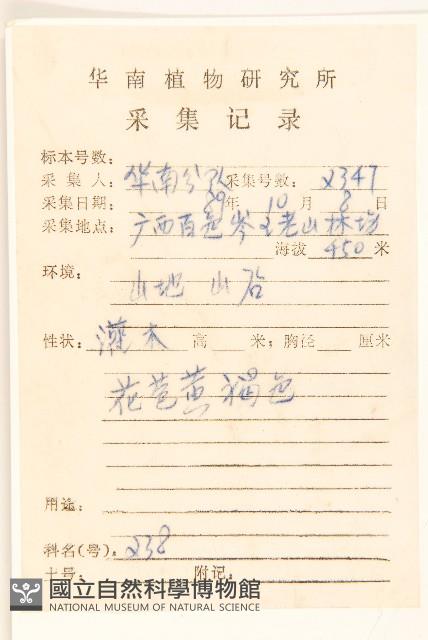 华南植物研究所
采集记录
标本号数：
采集人：华南分队 采集号数：2347
采集日期：89年10月8日
采集地点：广西百色岑王老山林场
海拔 450 米
环境：
山地 山谷
性状：灌木 高 米；胸径 厘米
花苞黄褐色
用途：
科名(号)。238
土号： 附记：
國立自然科學博物館
NATIONAL MUSEUM OF NATURAL SCIENCE